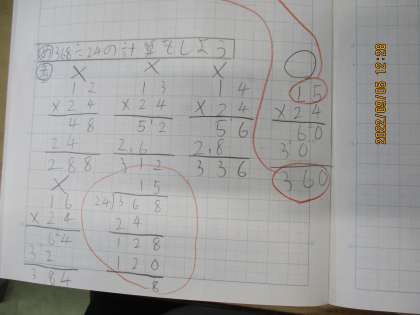 368÷24の計算をしよう
12
×24
48
24
288
13
×24
52
26
312
14
×24
56
28
336
15
×24
60
30
360
16
×24
64
32
384
15
24)368
24
128
120
8
2022/09/05 12:28